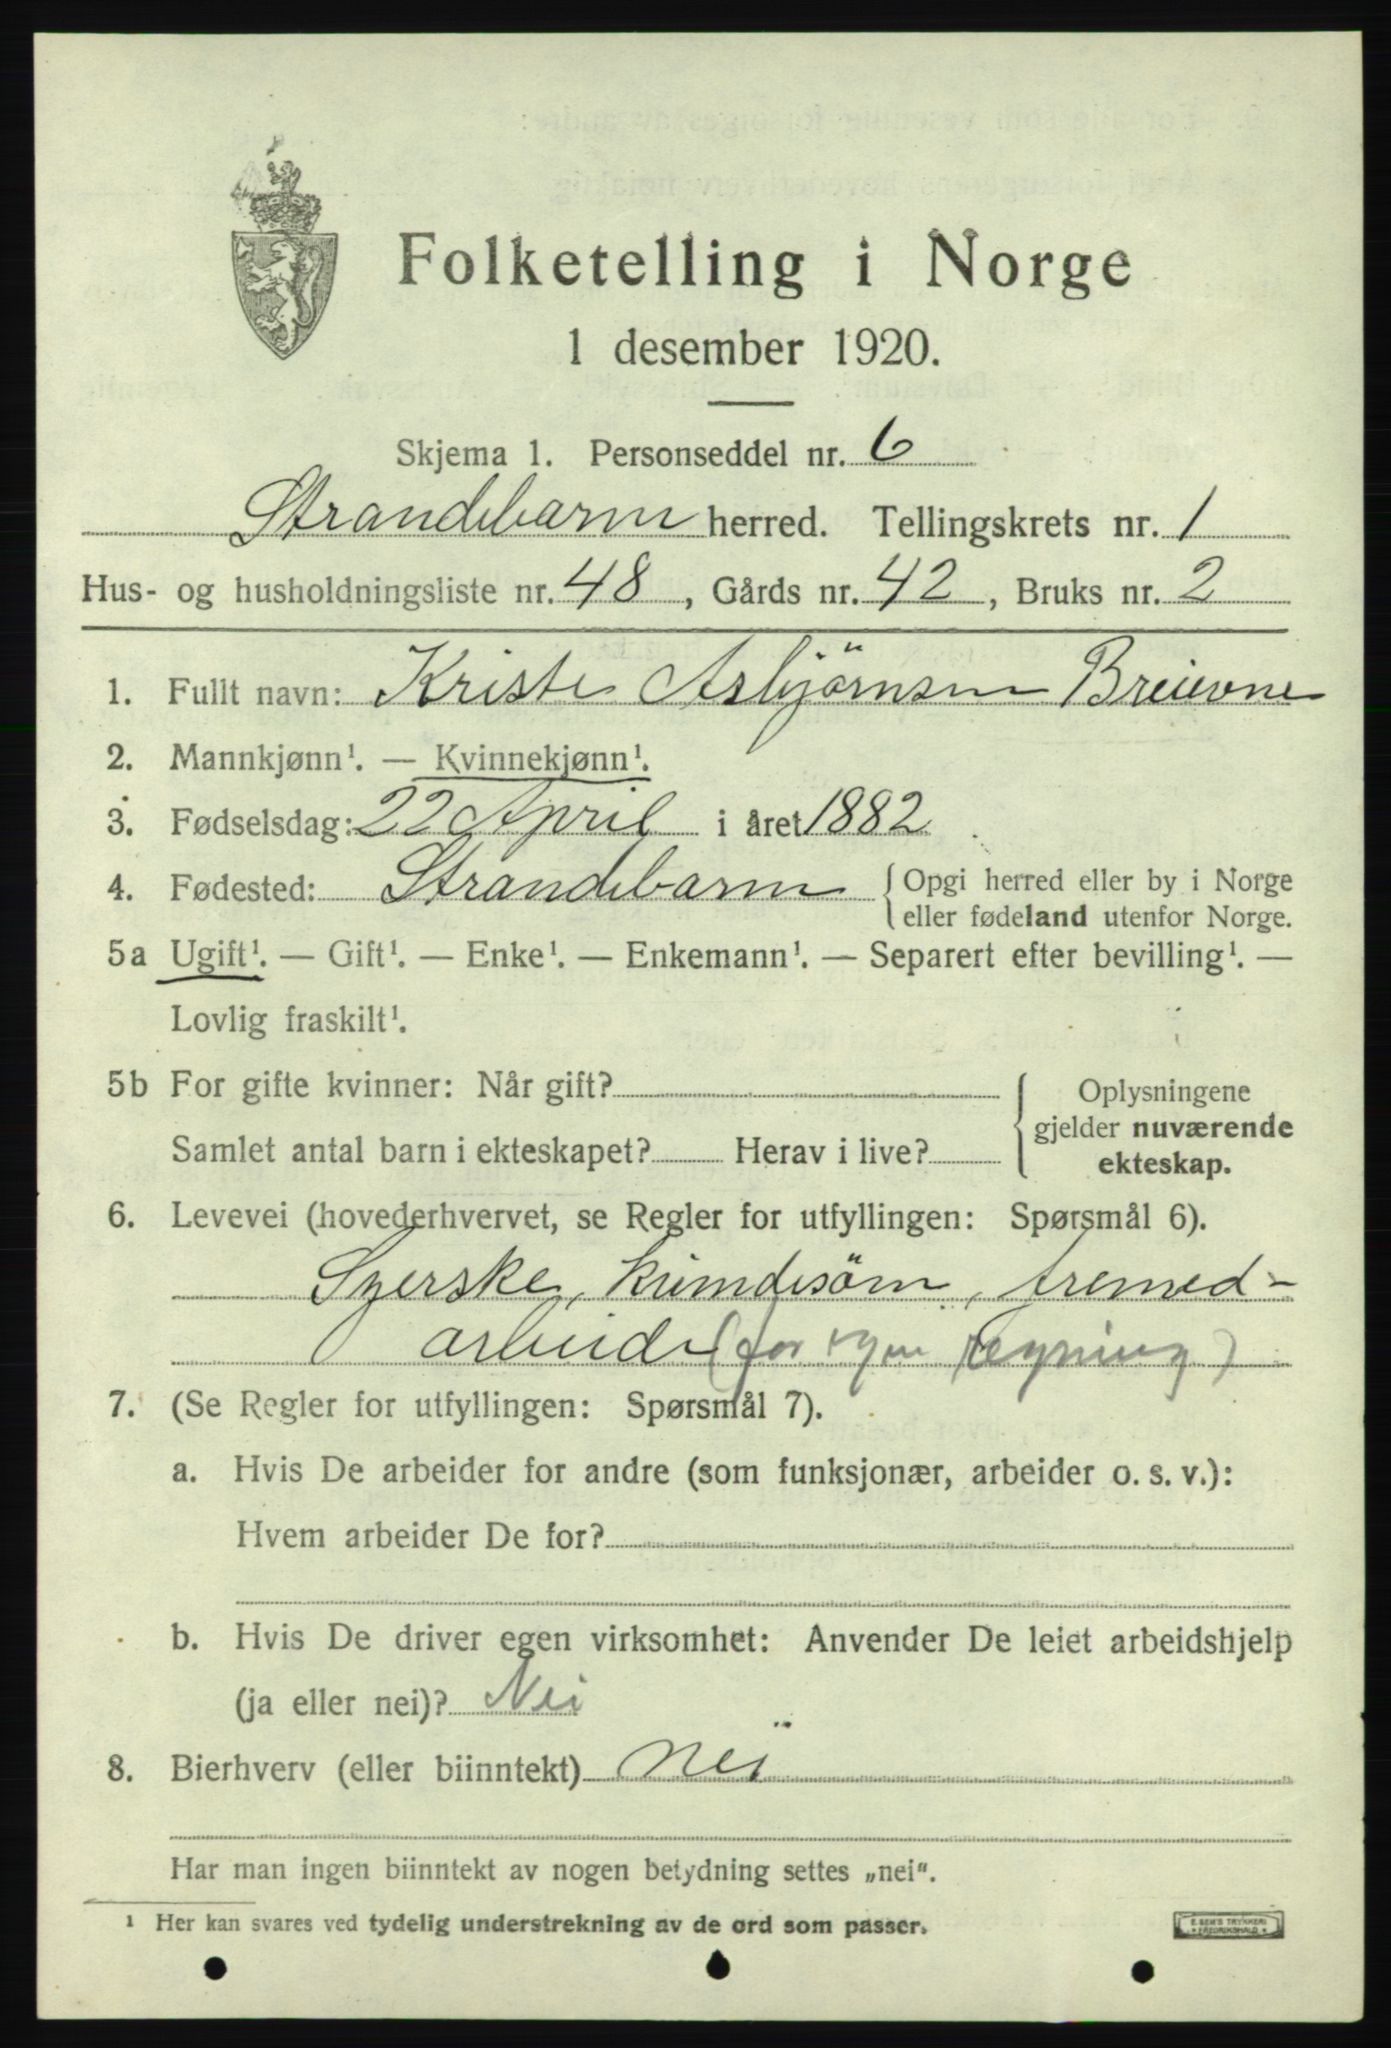 Folketelling i Norge
1 desember 1920.
Skjema 1. Personseddel nr. 6
Strandebarm herred. Tellingskrets nr. 1
Hus- og husholdningsliste nr. 48, Gårds nr. 42, Bruks nr. 2
1. Fullt navn: Kriste Asbjörnsen
2. Mannkjønn¹. — Kvinnekjønn¹.
3. Fødselsdag: 22 April i året 1882
4. Fødested: Strandebarm {Opgi herred eller by i Norge
eller fødeland utenfor Norge.
5a Ugift¹. — Gift¹. — Enke¹. — Enkemann¹. — Separert efter bevilling¹. —
Lovlig fraskilt¹.
5b For gifte kvinner: Når gift? { Oplysningene
gjelder nuværende
Samlet antal barn i ekteskapet? Herav i live? ekteskap.
6. Levevei (hovederhvervet, se Regler for utfyllingen: Spørsmål 6).
Syerske, kundesöm, fremed-
arbeide (for egen regning)
7. (Se Regler for utfyllingen: Spørsmål 7).
a. Hvis De arbeider for andre (som funksjonær, arbeider o. s. v.):
Hvem arbeider De for?
b. Hvis De driver egen virksomhet: Anvender De leiet arbeidshjelp
(ja eller nei)? Nei
8. Bierhverv (eller biinntekt) nei
Har man ingen biinntekt av nogen betydning settes „nei“.
¹ Her kan svares ved tydelig understrekning av de ord som passer.
E. SEM'S TRYKKERI
FREDRIKSHALD